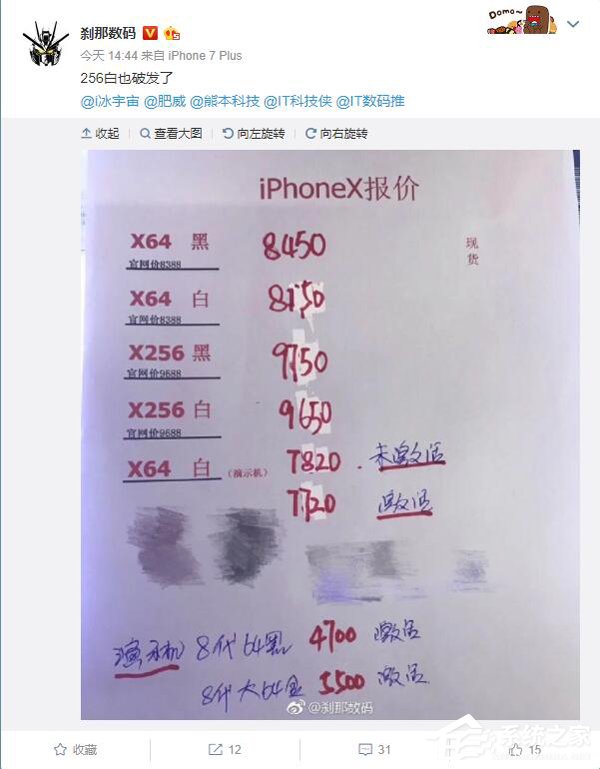 Domo~
刹那数码
今天 14:44 来自 iPhone 7 Plus
256白也破发了
@i冰宇宙 @肥威 @熊本科技 @IT科技侠 @IT数码推
收起 查看大图 向左旋转 向右旋转
iPhoneX报价
X64 黑 8450 现货
官网价8388
X64 白 8150
官网价8388
X256 黑 9750
官网价9688
X256 白 9650
官网价9688
X64 白 (演示机) 7820 . 未激活
7720 激活
演示机 8代64黑 4700 激活
8代大64金 5500 激活
@刹那数码
系统之家
收藏 12 31 15